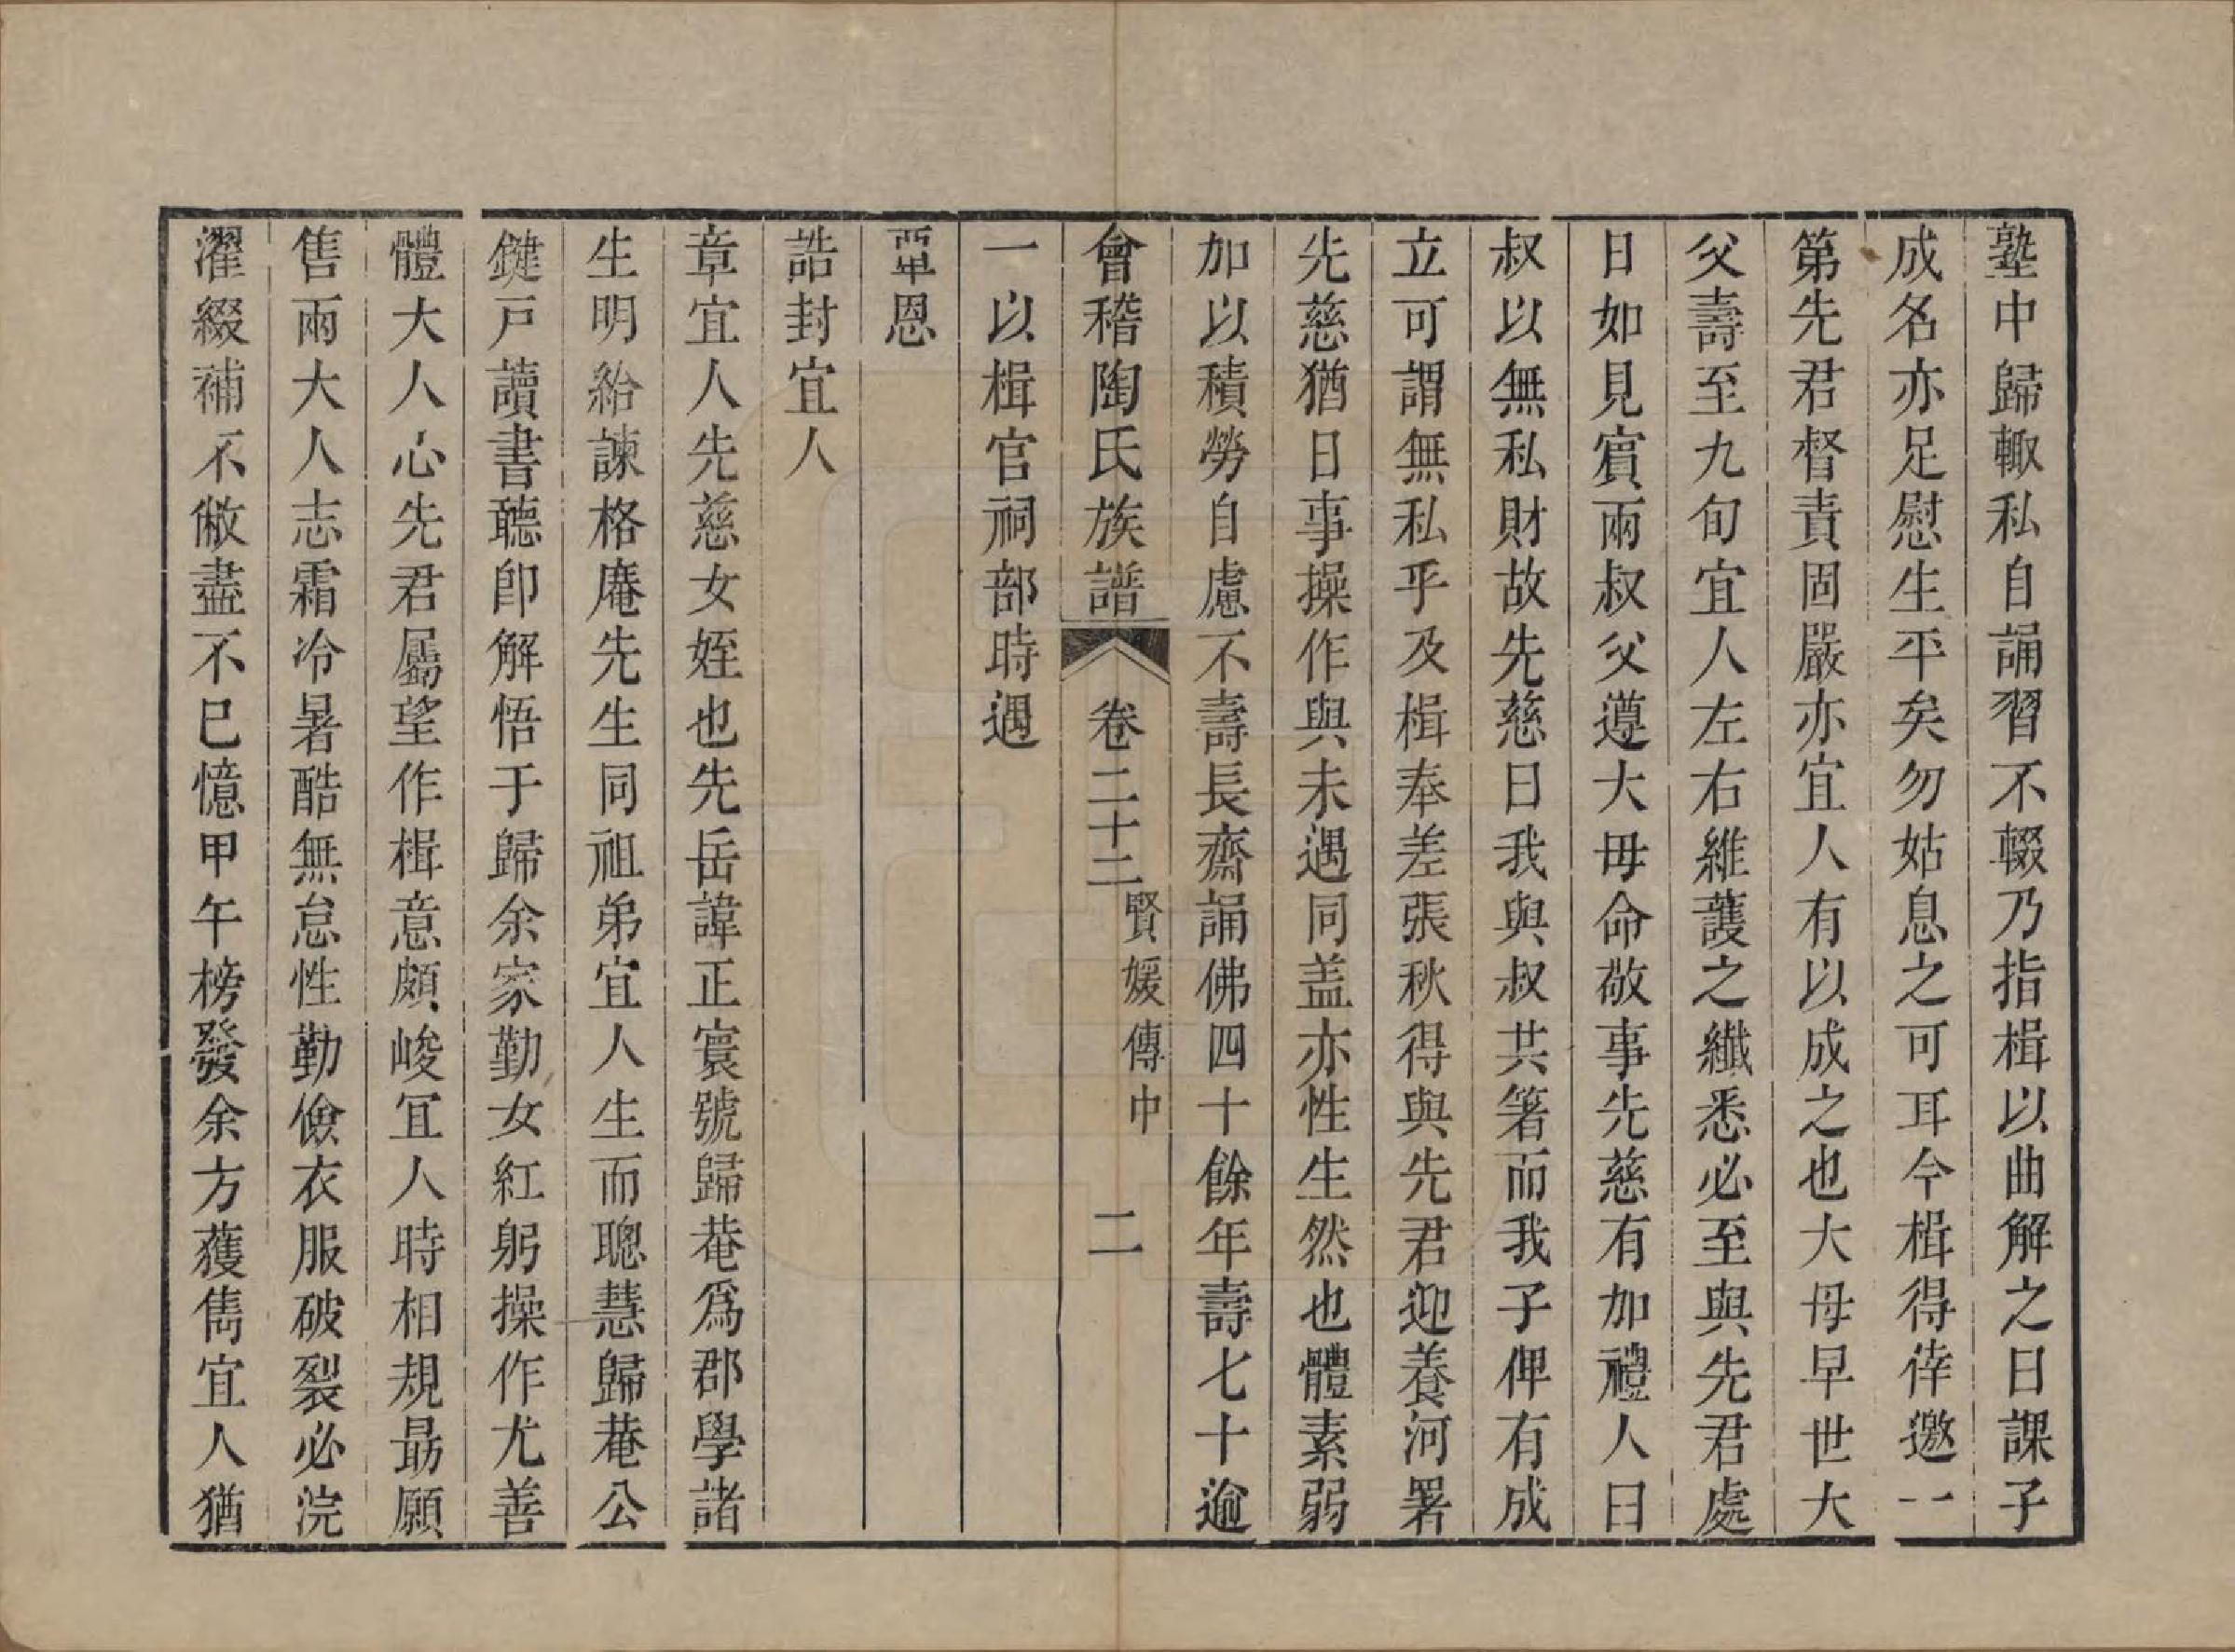 塾中歸輙私自誦習不輟乃指楫以曲解之日課子
成名亦足慰生平矣勿姑息之可耳今楫得倖邀一
第先君督責固嚴亦宜人有以成之也大母早世大
父壽至九旬宜人左右維護之纖悉必至與先君處
日如見賓兩叔父遵大毋命敬事先慈有加禮人曰
叔以無私財故先慈曰我與叔共箸而我子俾有成
立可謂無私乎及楫奉差張秋得與先君迎養河署
先慈猶日事操作與未遇同盖亦性生然也體素弱
加以積勞自慮不壽長齋誦佛四十餘年壽七十逾
會稽陶氏族譜 卷二十二 賢媛傳中 二
一以楫官祠部時遇
覃恩
誥封宜人
章宜人先慈女姪也先岳諱正寰號歸菴爲郡學諸
生明給諫格庵先生同祖弟宜人生而聰慧歸菴公
鍵戸讀書聽卽解悟于歸余家勤女紅躬操作尤善
體大人心先君屬望作楫意頗峻宜人時相規最願
售兩大人志霜冷暑酷無怠性勤儉衣服破裂必浣
濯綴補不敝盡不已憶甲午榜發余方獲雋宜人猶